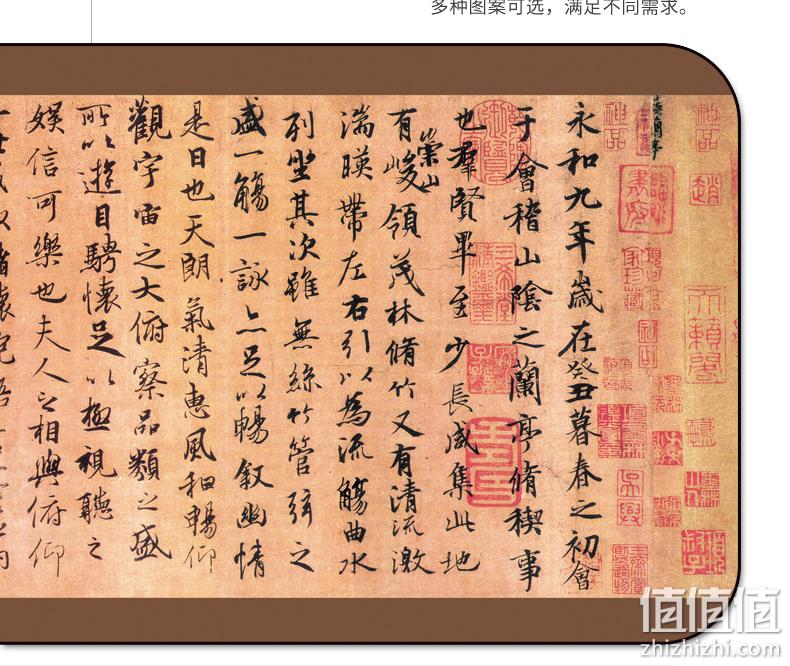 多种图案可选，满足不同需求。
神品
天籟閣
神品
永和九年歲在癸丑暮春之初會
于會稽山陰之蘭亭脩稧事
也羣賢畢至少長咸集此地
有崇山峻領茂林脩竹又有清流激
湍暎帶左右引以為流觴曲水
列坐其次雖無絲竹管弦之
盛一觴一詠亦足以暢敘幽情
是日也天朗氣清惠風和暢仰
觀宇宙之大俯察品類之盛
所以遊目騁懷足以極視聽之
娛信可樂也夫人之相與俯仰
值值值
zhizhizhi.com